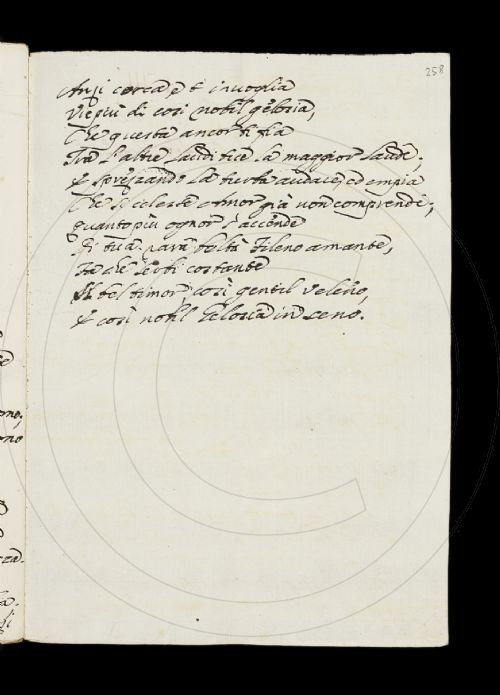 258
Anzi cerca e t'invoglia
Vie più di così nobil gelosia,
Che questa ancor ti sia
Tra l'altre laudi tue la maggior laude;
Et sprezzando la turba audace, ed empia
Che sì celeste Amor già non comprende;
quanto più ognor s'accende
Di tua rara beltà Fileno amante,
costante
timor, così gentil veleno,
Et così nobil Gelosia in seno.